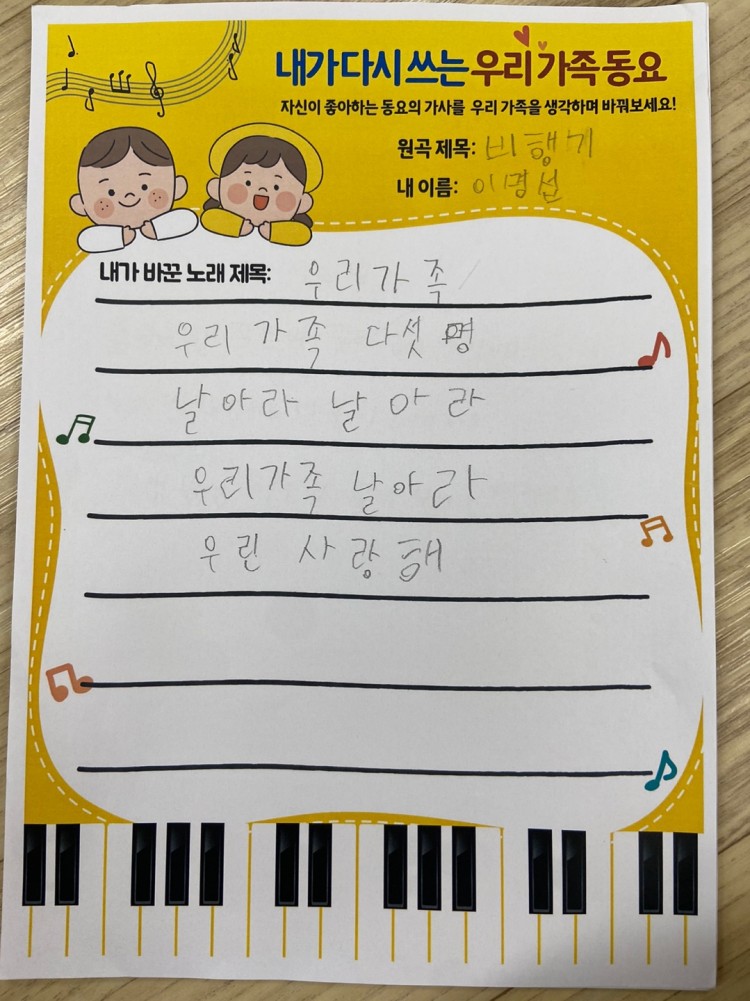 내가 다시 쓰는 우리 가족 동요
자신이 좋아하는 동요의 가사를 우리 가족을 생각하며 바꿔보세요!
원곡 제목: 비행기
내 이름: 이경설
내가 바꾼 노래 제목: 우리가족
우리 가족 다섯 명
날아라 날아라
우리가족 날아라
우린 사랑해